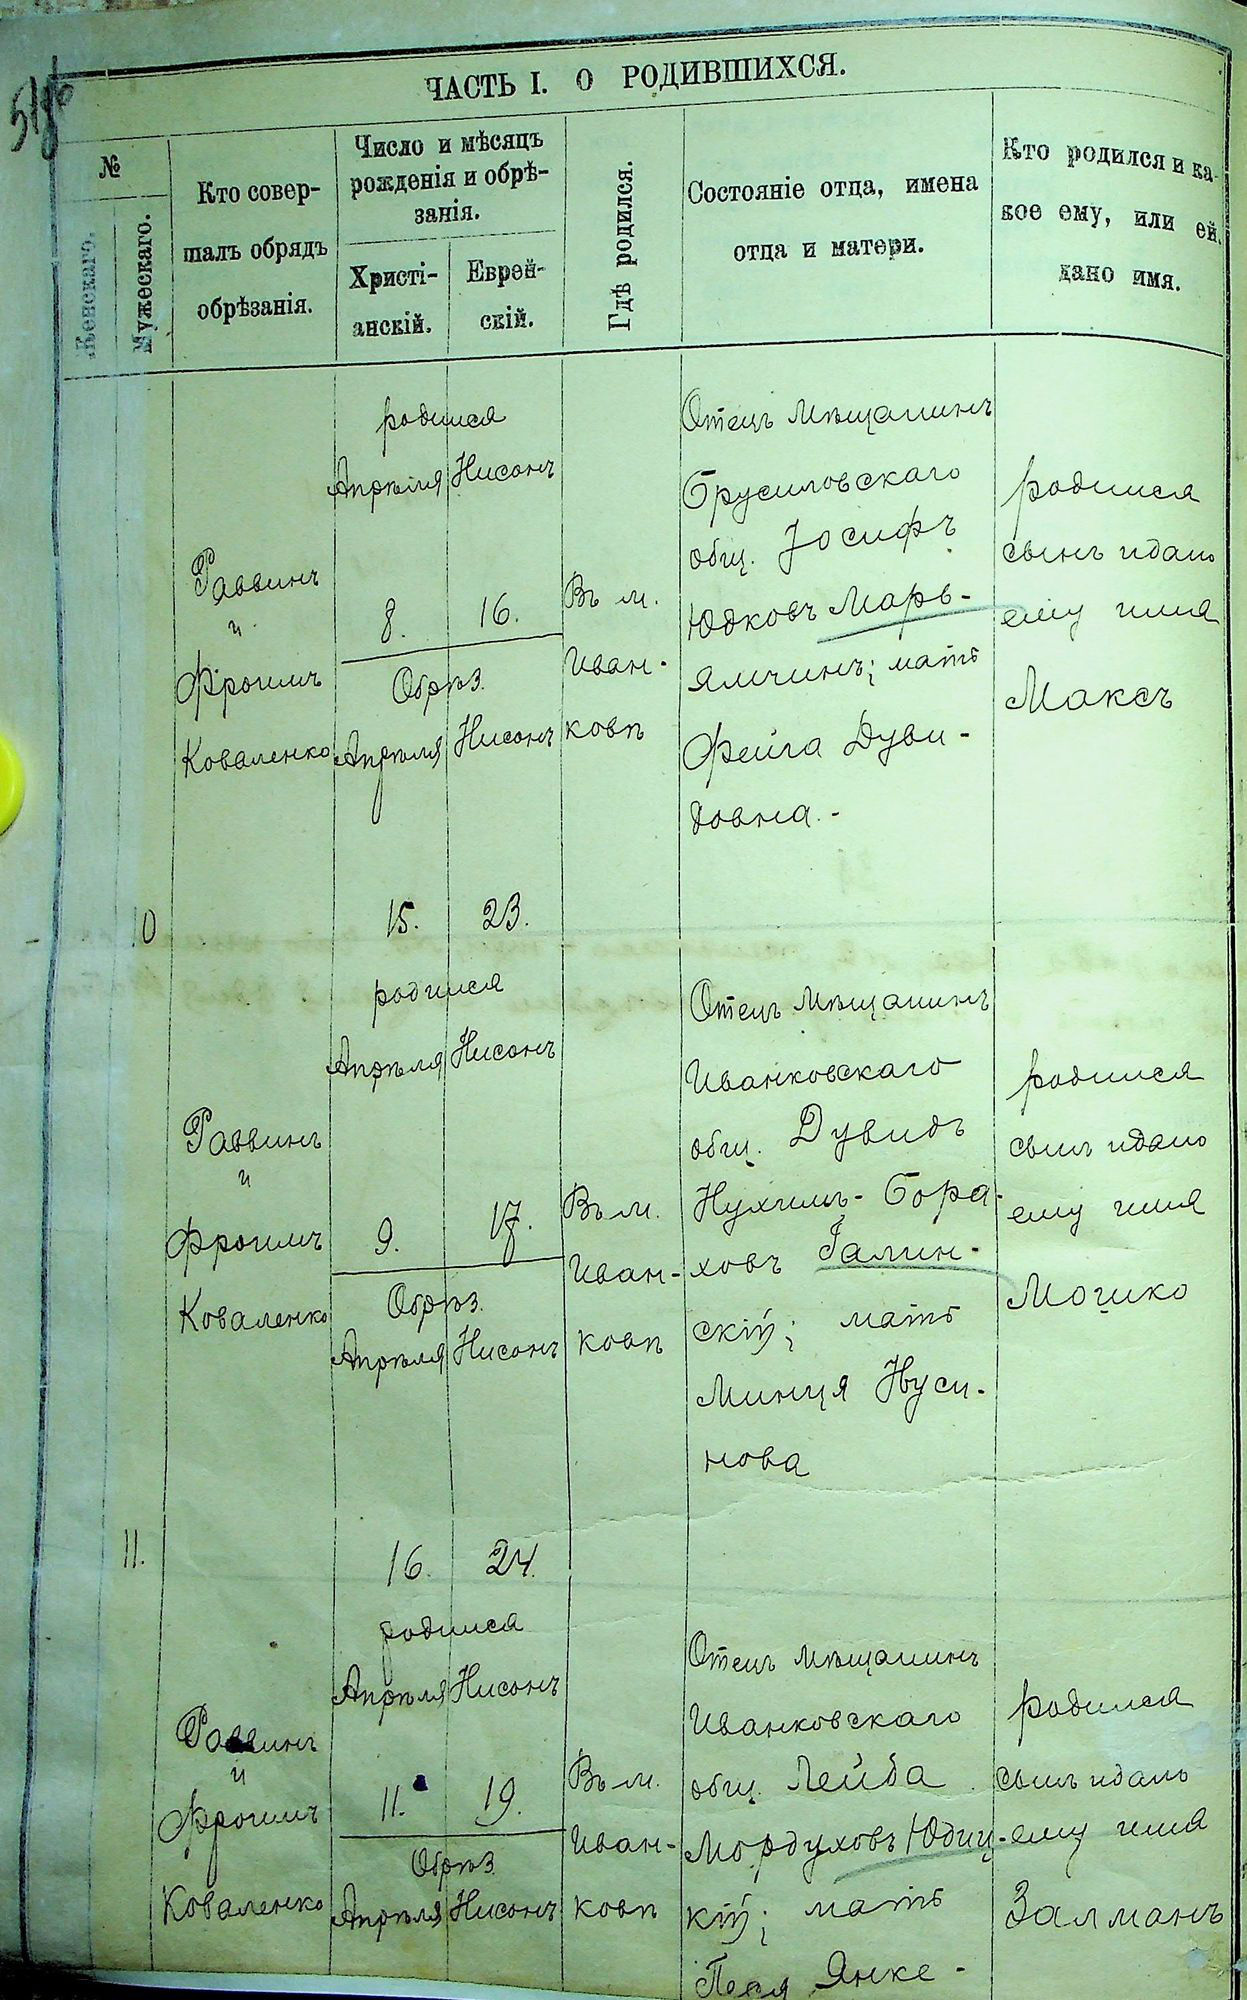 ЧАСТЬ I. О РОДИВШИХСЯ.
№
Женскаго.
Мужескаго.
Кто совер-
шалъ обрядъ
обрѣзанія.
Число и мѣсяцъ
рожденія и обрѣ-
занія.
Христі-
анскій.
Еврей-
скій.
Гдѣ родился.
Состояніе отца, имена
отца и матери.
Кто родился и ка-
кое ему, или ей,
дано имя.
Раввинъ
и
Фроимъ
Коваленко
родился
Апрѣля Нисонъ
8. 16.
Обрѣз.
Апрѣля Нисонъ
15. 23.
Въ м.
Иван-
ковѣ
Отецъ Мѣщанинъ
Брусиловскаго
общ. Іосифъ
Юдковъ Марь-
ямчинъ; мать
Фейга Дуви-
довна.-
родился
сынъ и дано
ему имя
Максъ
10
Раввинъ
и
Фроимъ
Коваленко
родился
Апрѣля Нисонъ
9. 17.
Обрѣз.
Апрѣля Нисонъ
16. 24.
Въ м.
Иван-
ковѣ
Отецъ Мѣщанинъ
Иванковскаго
общ. Дувидъ
Нухимъ-Бора-
ховъ Галин-
скій; мать
Минця Нуси-
нова
родился
сынъ и дано
ему имя
Мошко
11.
Раввинъ
и
Фроимъ
Коваленко
родился
Апрѣля Нисонъ
11. 19.
Обрѣз.
Апрѣля Нисонъ
Въ м.
Иван-
ковѣ
Отецъ Мѣщанинъ
Иванковскаго
общ. Лейба
Мордуховъ Юдиц-
кій; мать
Песя Янке-
родился
сынъ и дано
ему имя
Залманъ